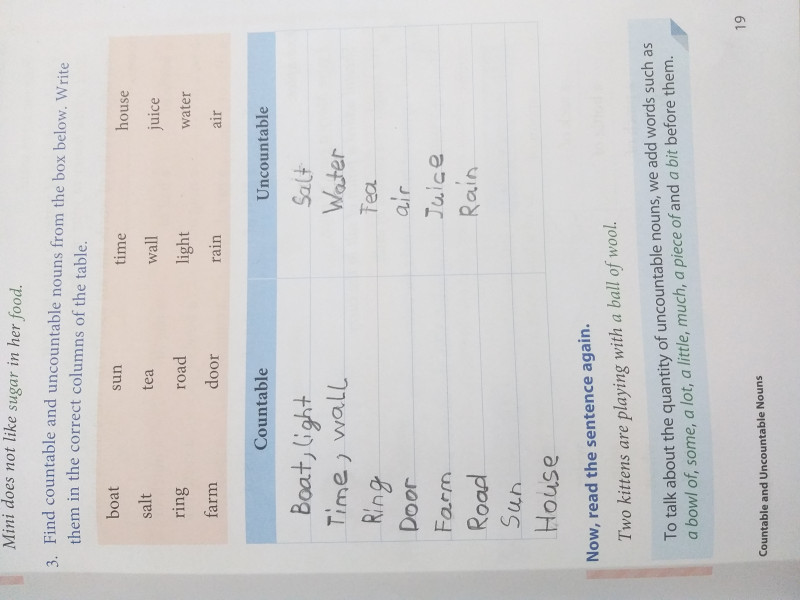 Mini does not like sugar in her food.
3. Find countable and uncountable nouns from the box below. Write
them in the correct columns of the table.
boat sun time house
salt tea wall juice
ring road light water
farm door rain air
Countable Uncountable
Boat, light Salt
Time, wall Water
Ring Tea
Door air
Farm Juice
Road Rain
Sun
House
Now, read the sentence again.
Two kittens are playing with a ball of wool.
To talk about the quantity of uncountable nouns, we add words such as
a bowl of, some, a lot, a little, much, a piece of and a bit before them.
Countable and Uncountable Nouns 19